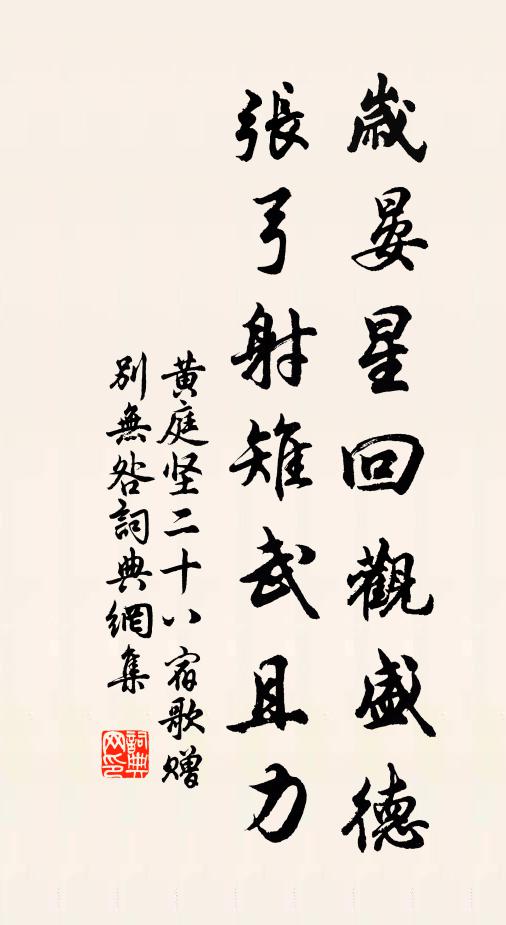 歲晏星回觀盛德
張弓射雉武且力
黃庭坚二十八宿歌赠
別無咎詞典網集
詞典网印